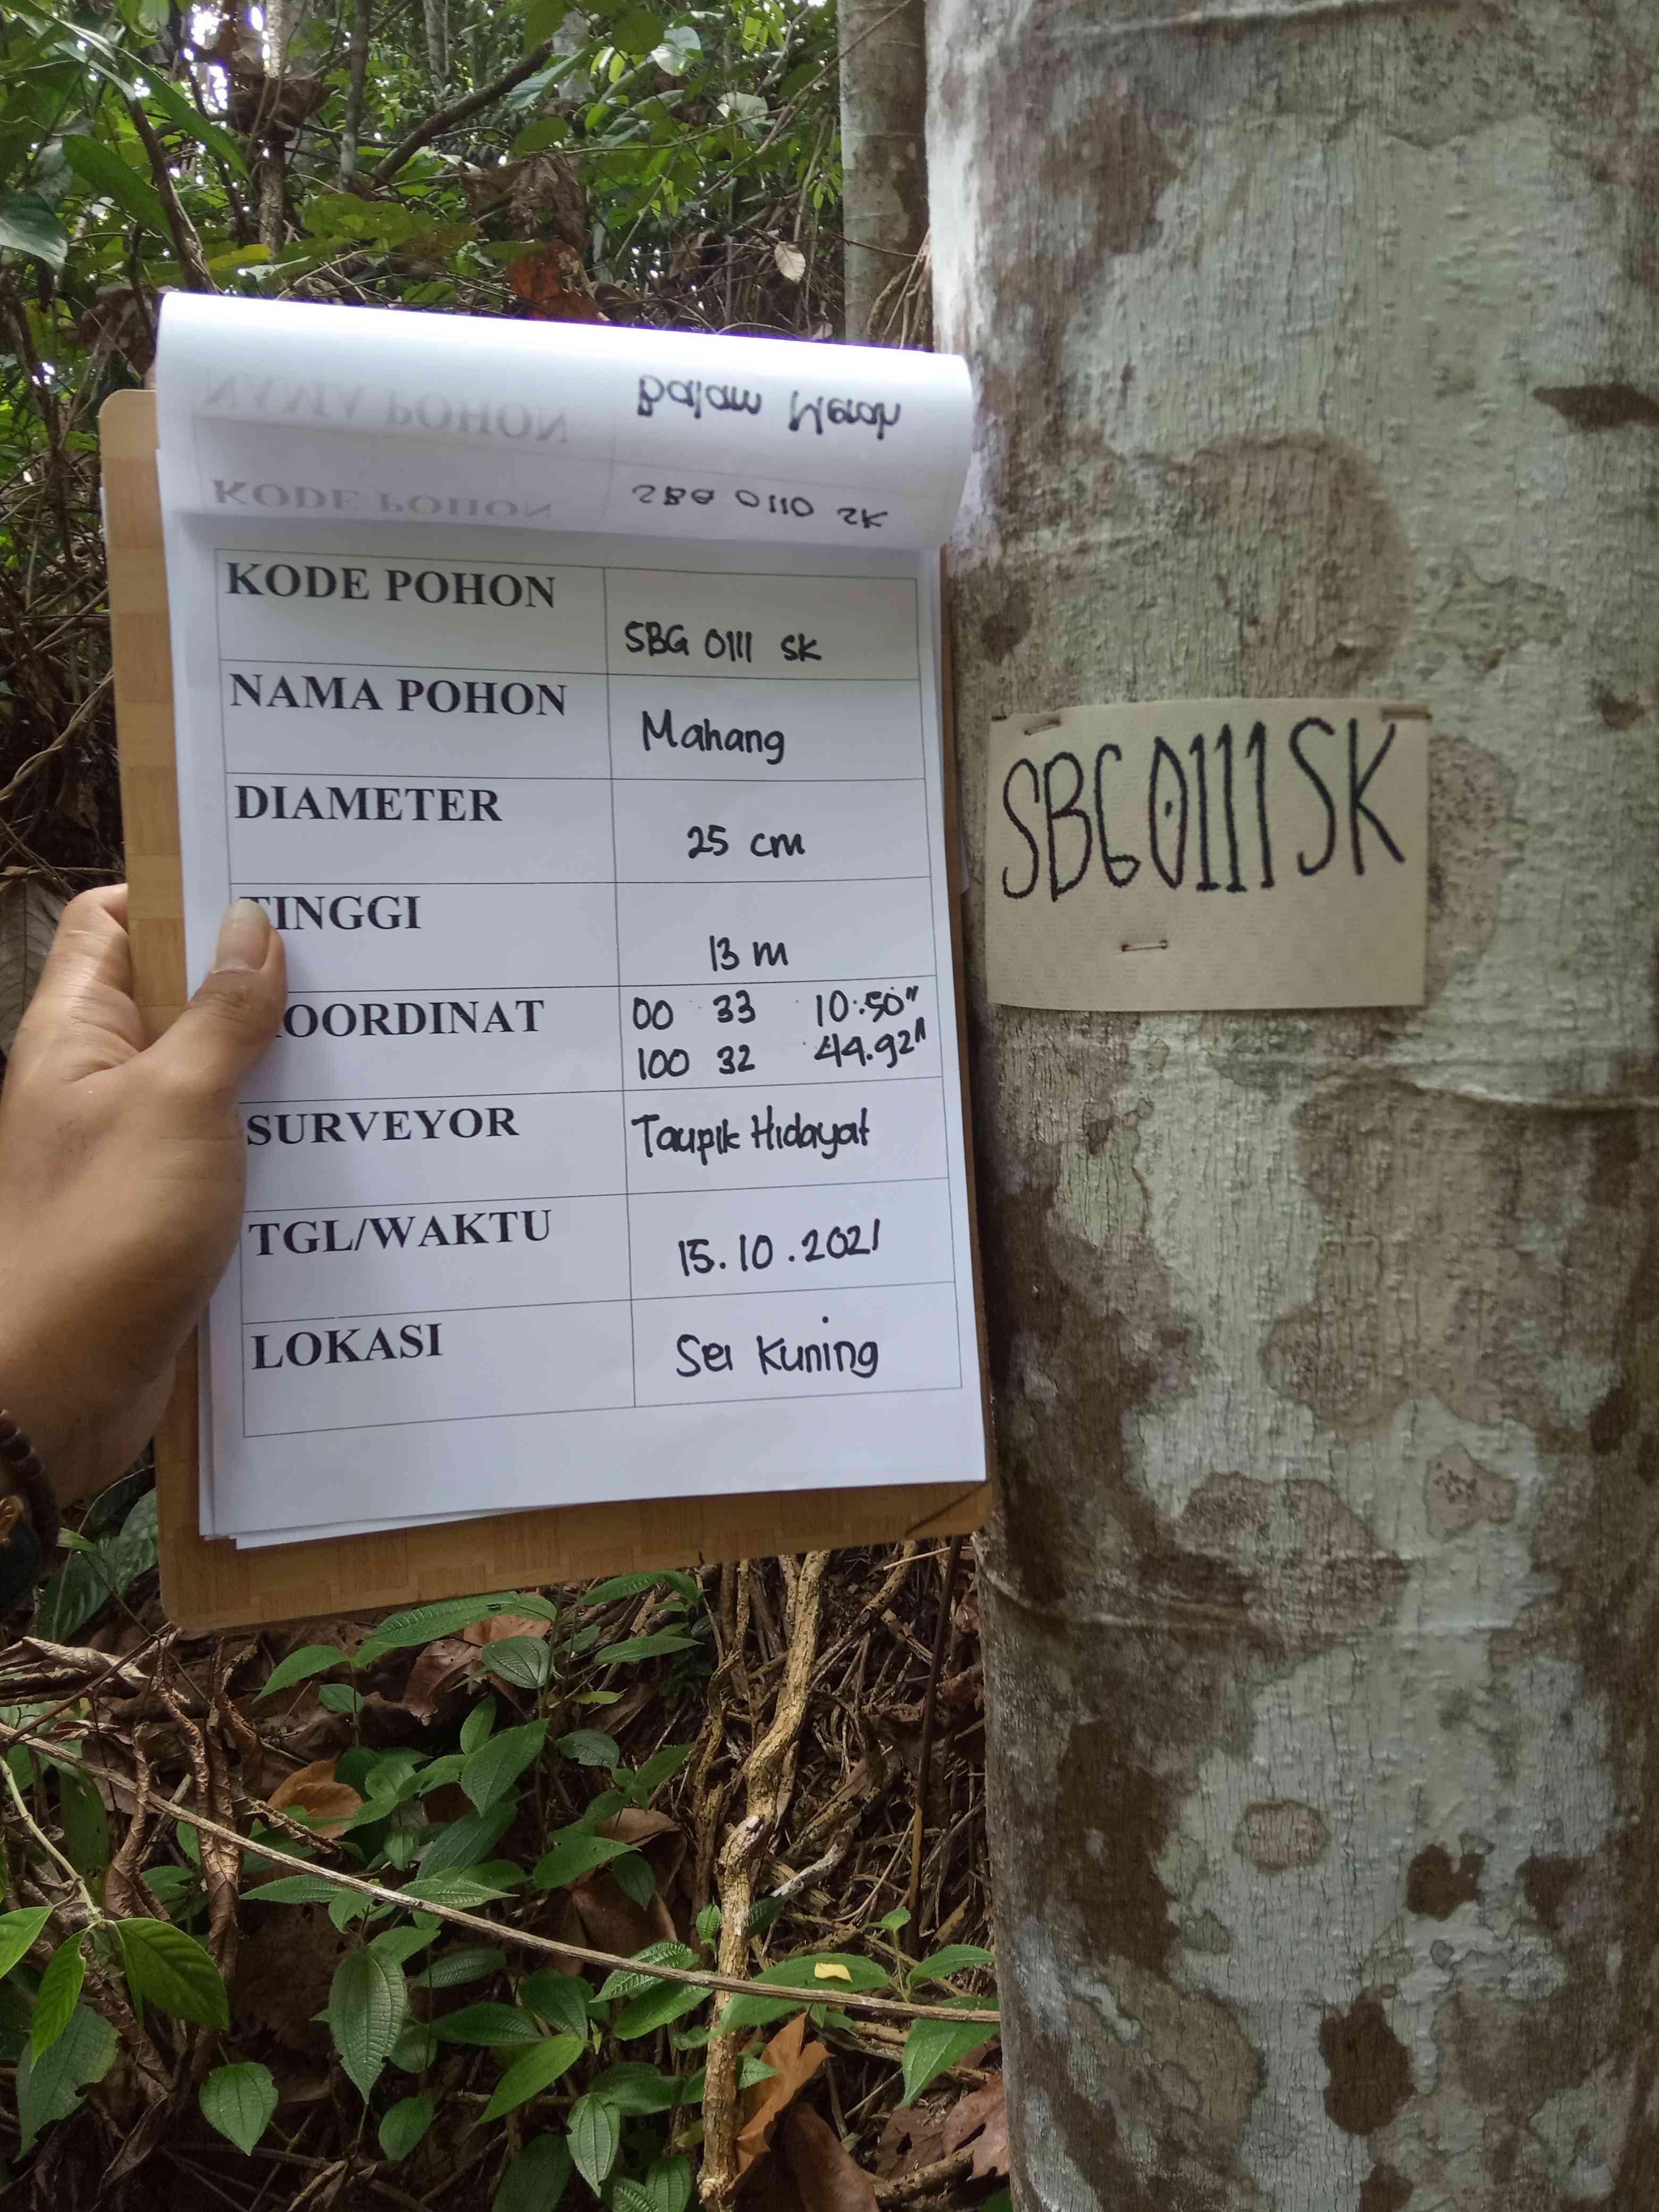 Balam Merah
NAMA POHON
SBG 0110 SK
KODE POHON
KODE POHON
SBG 0111 SK
NAMA POHON
Mahang
DIAMETER
25 cm
TINGGI
13 m
KOORDINAT
00 33 10.50"
100 32 44.92"
SURVEYOR
Taupik Hidayat
TGL/WAKTU
15.10.2021
LOKASI
Sei Kuning
SBG0111SK